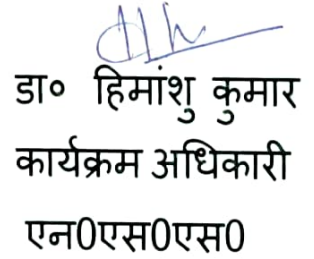 डा० हिमांशु कुमार
कार्यक्रम अधिकारी
एन0एस0एस0